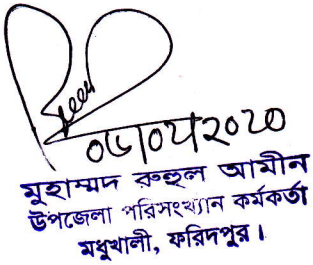 মুহাম্মদ রুহুল আমীন
উপজেলা পরিসংখ্যান কর্মকর্তা
মধুখালী, ফরিদপুর।